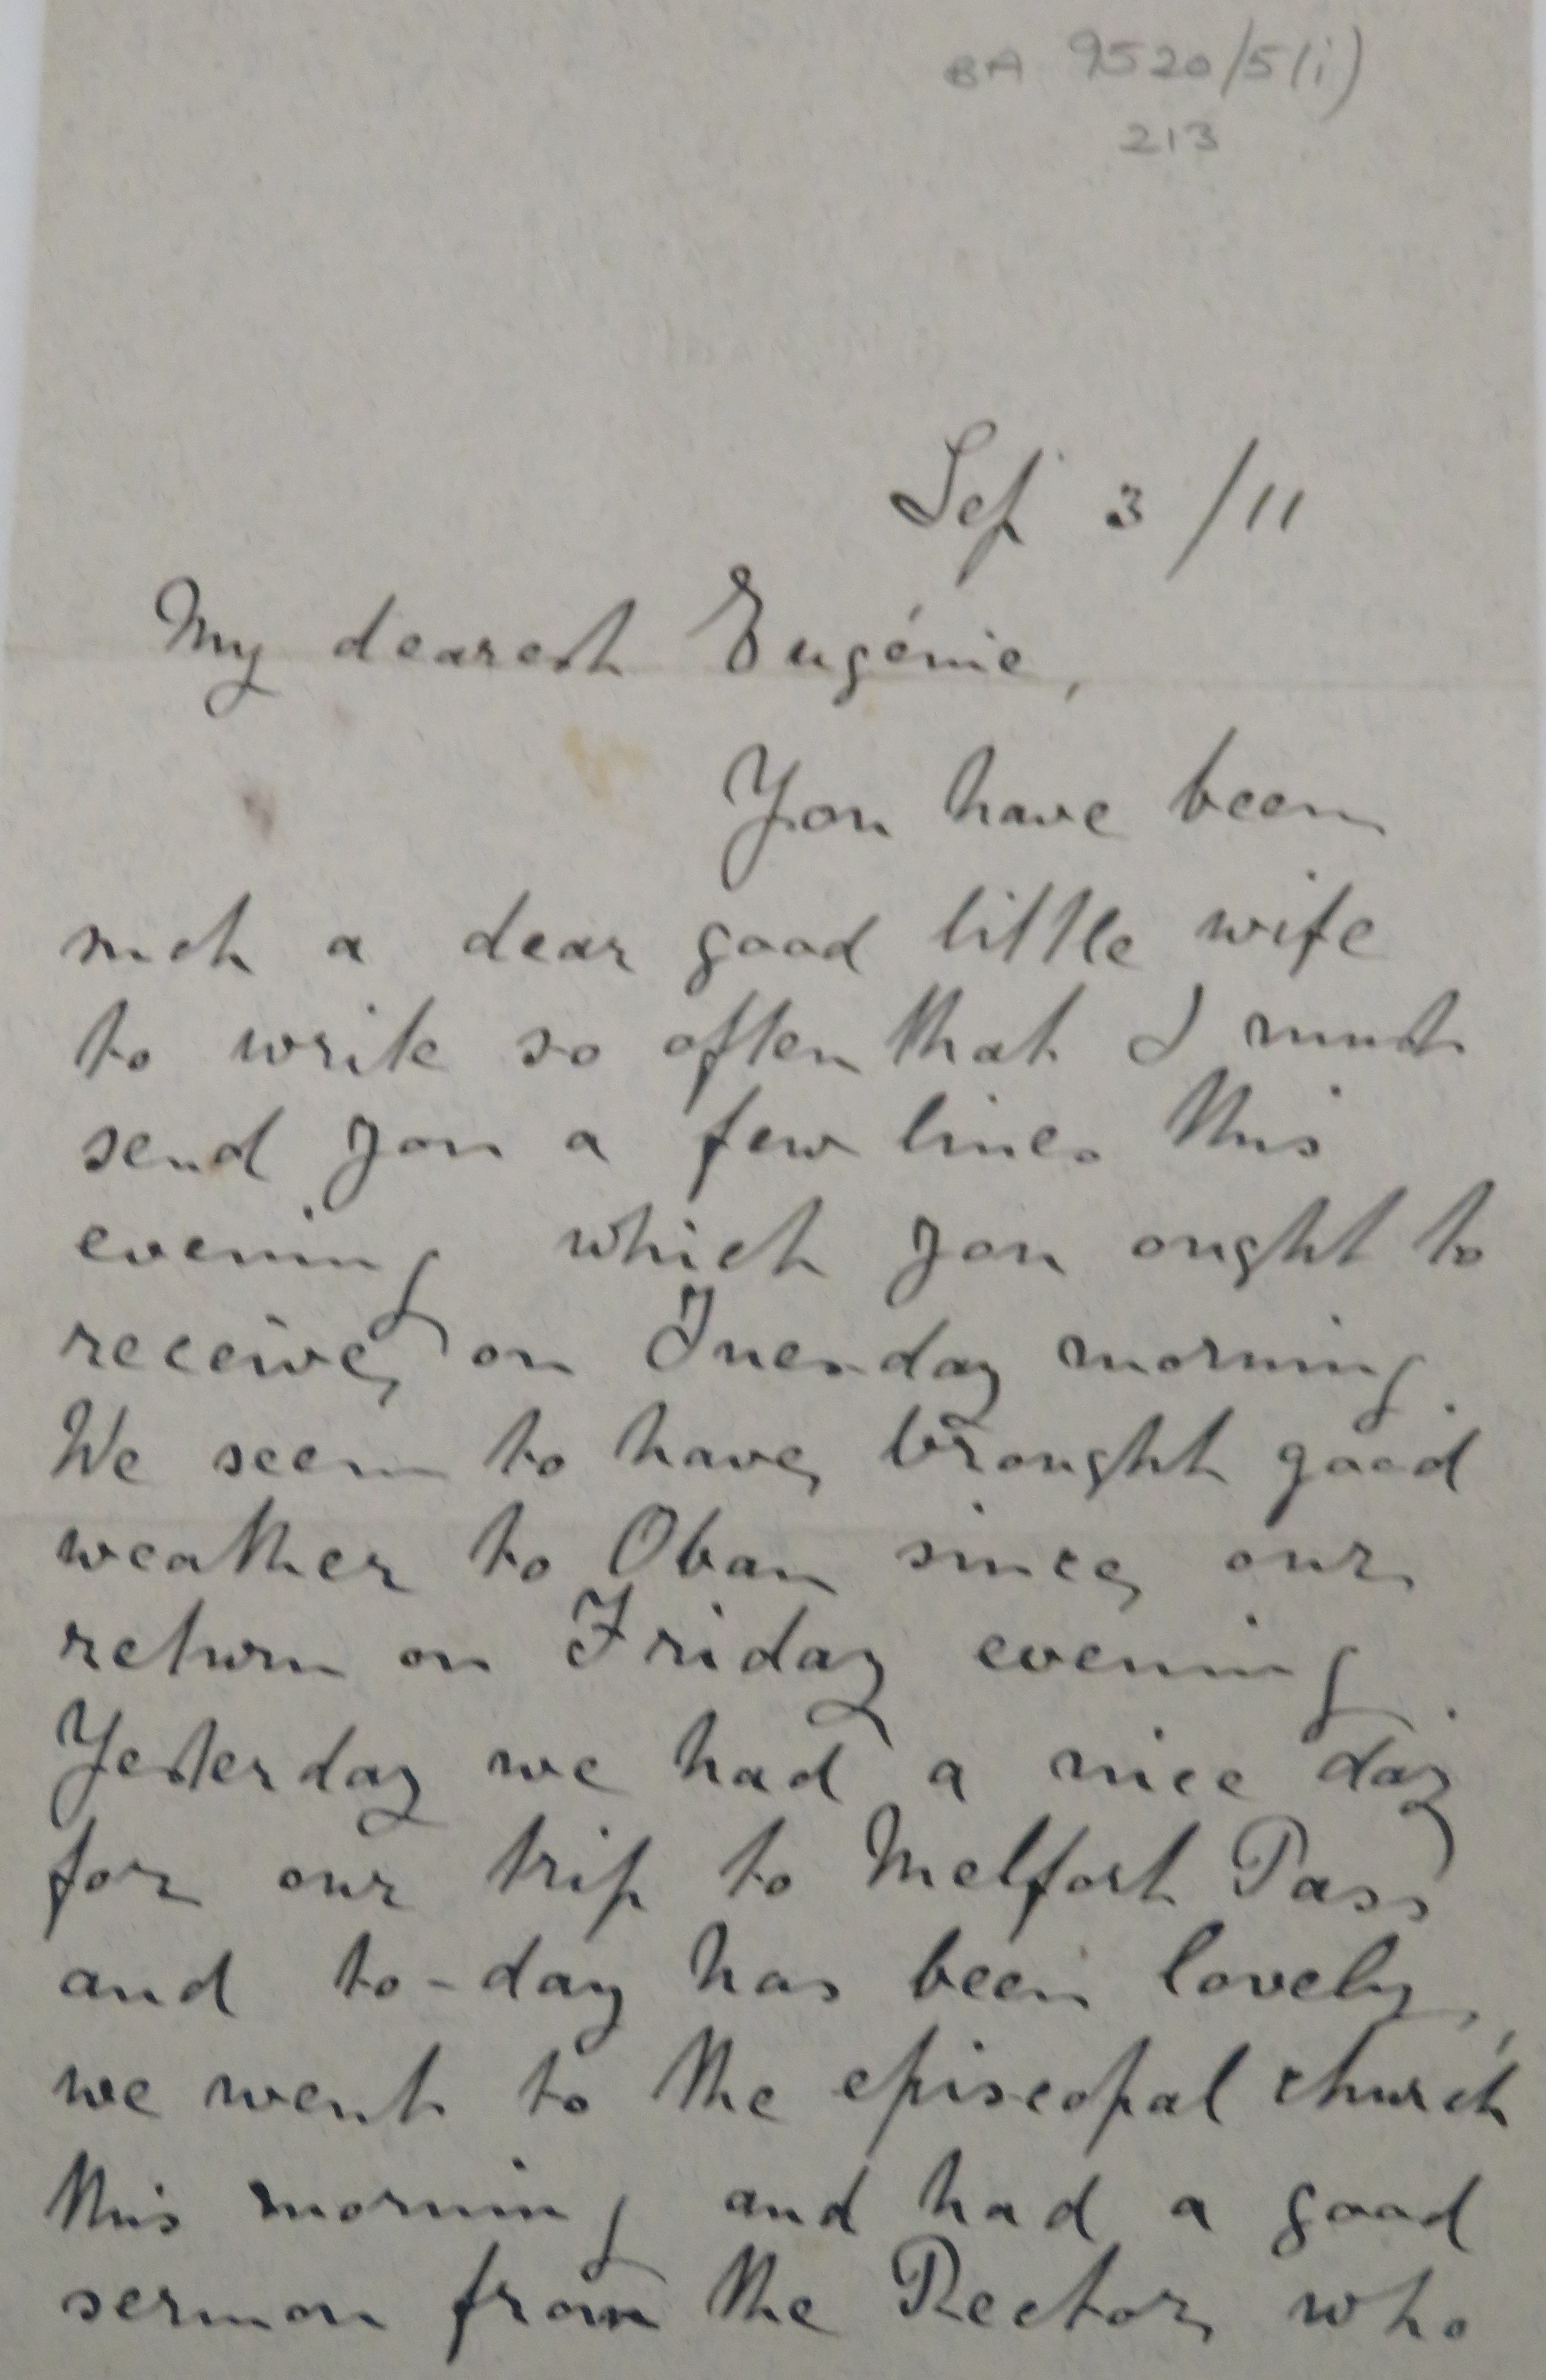 BA 9520/5(i)
213
Sep 3/11
My dearest Eugénie,
You have been
such a dear good little wife
to write so often that I must
send you a few lines this
evening which you ought to
receive on Tuesday morning.
We seem to have brought good
weather to Oban since our
return on Friday evening.
Yesterday we had a nice day
for our trip to Melfort Pass
and to-day has been lovely,
we went to the episcopal church
this morning and had a good
sermon from the Rector who